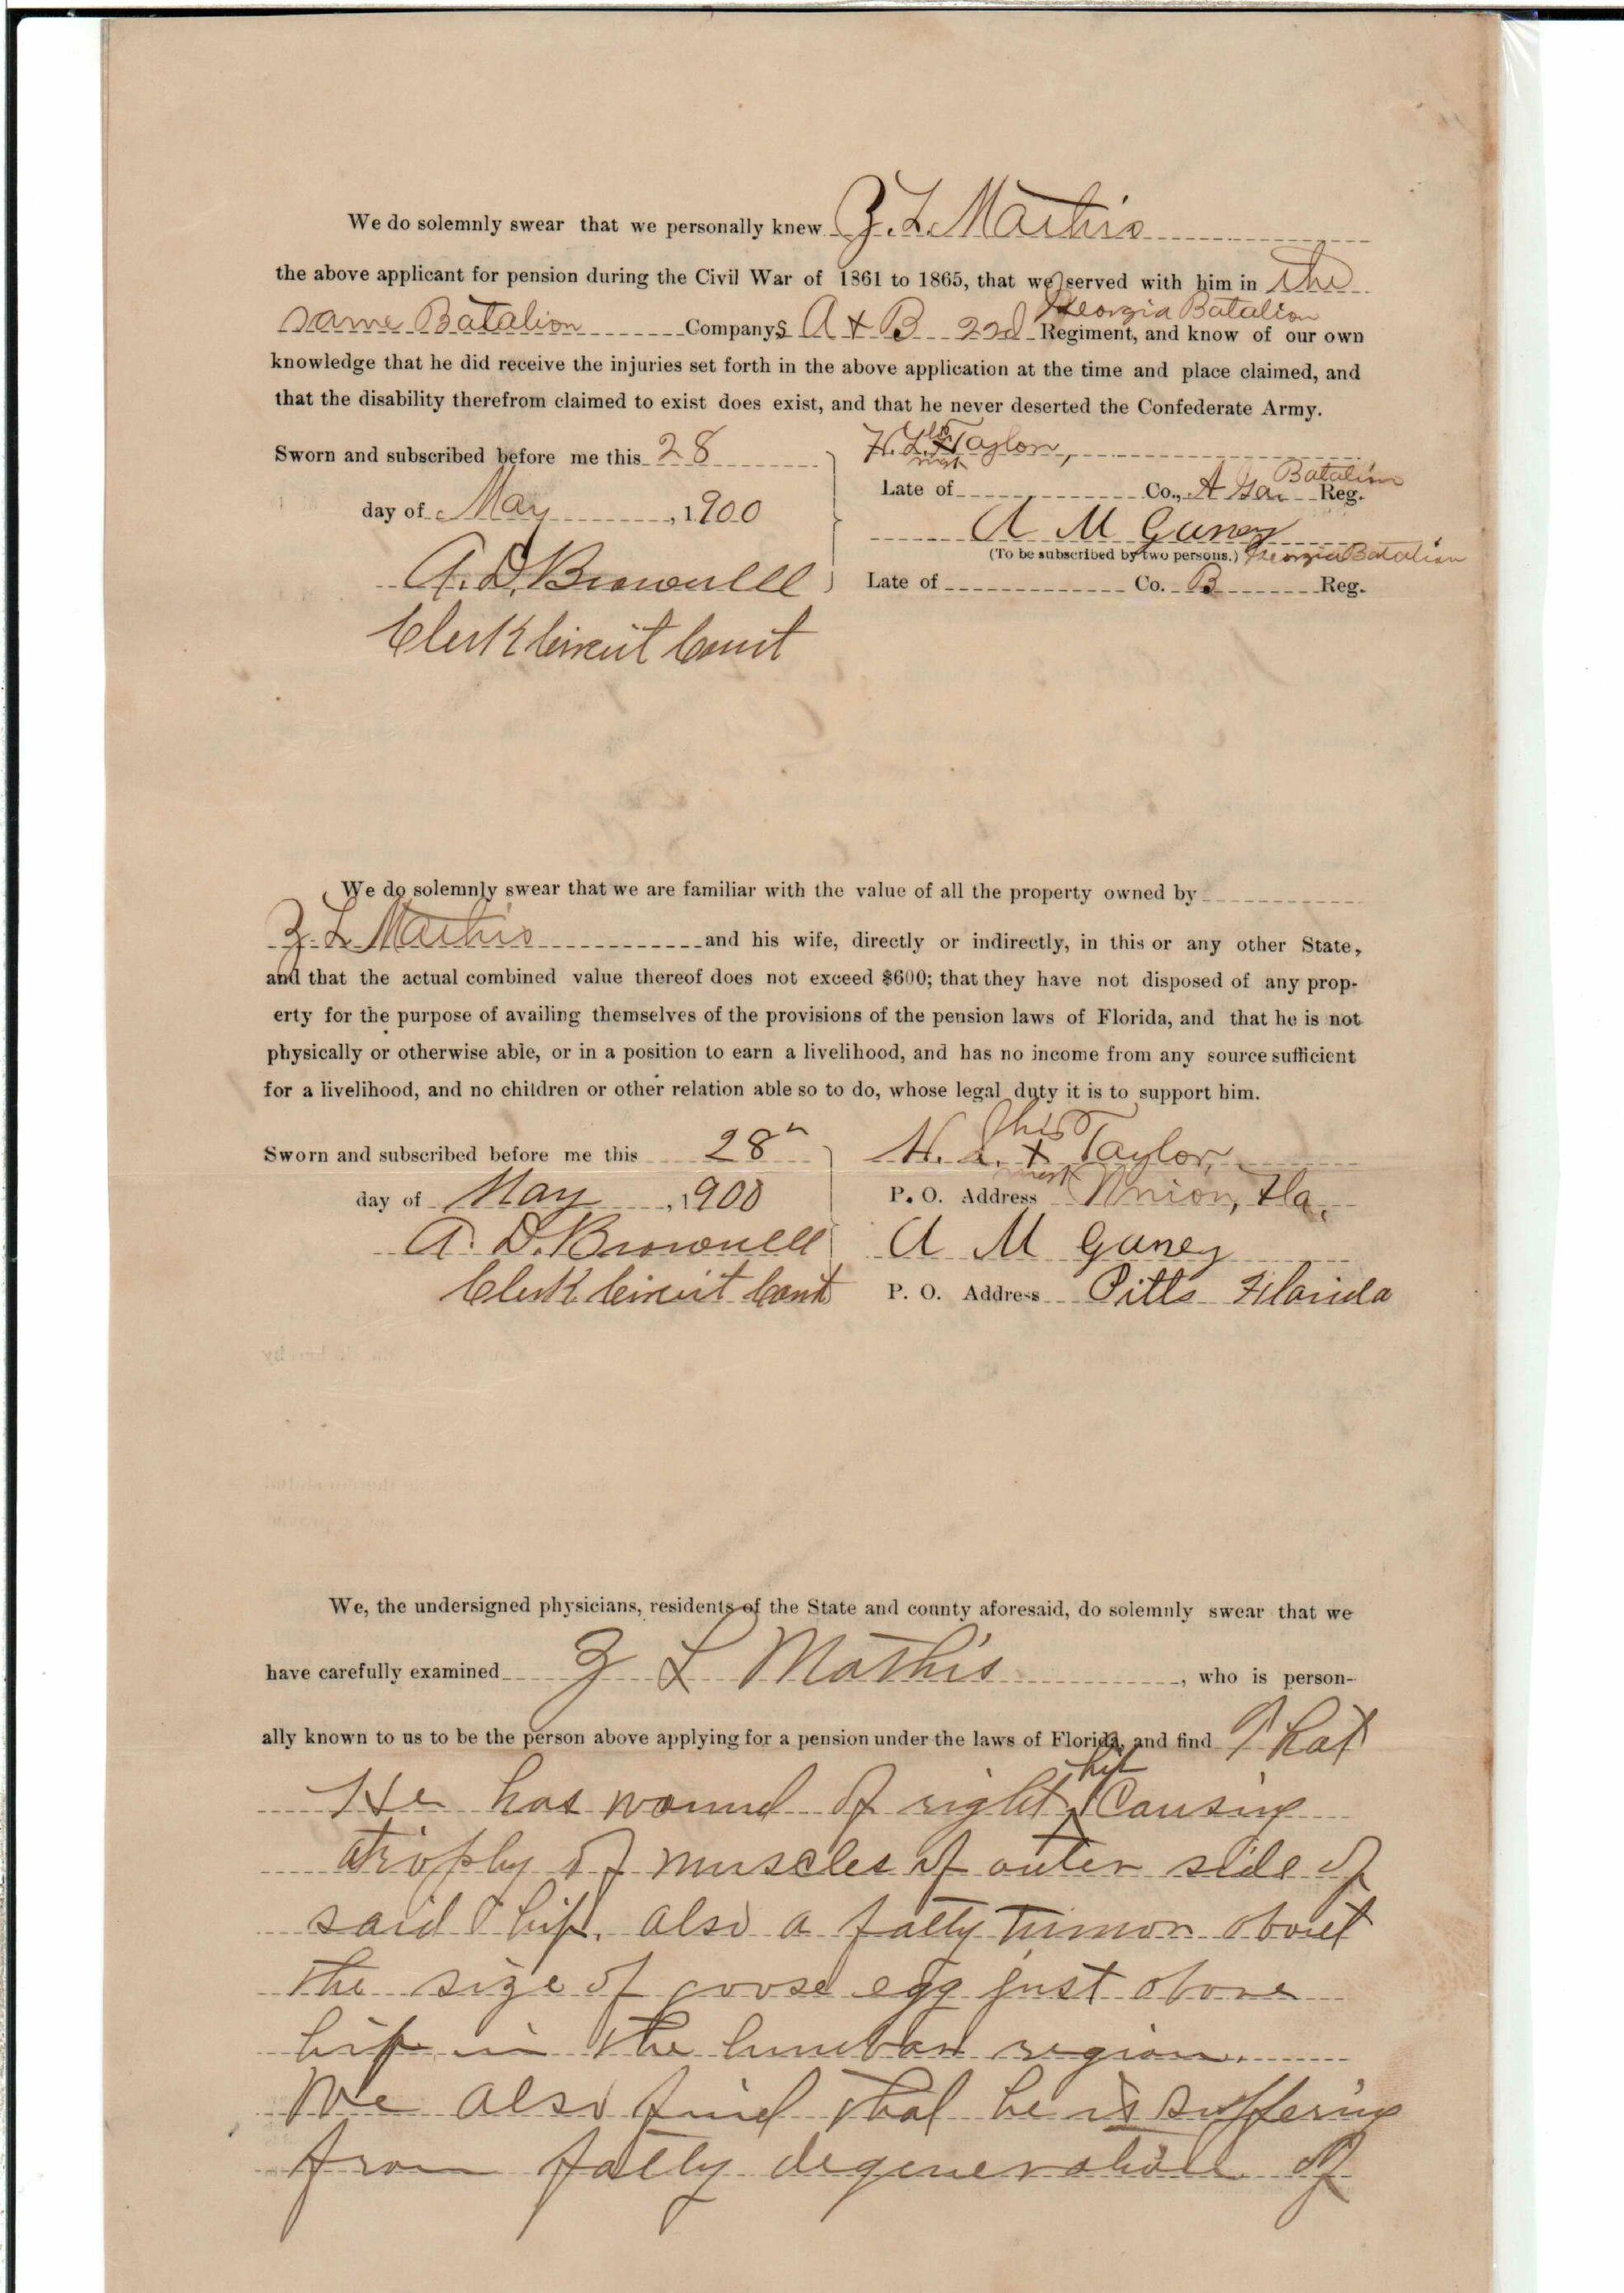 We do solemnly swear that we personally knew Z. L. Mathis
the above applicant for pension during the Civil War of 1861 to 1865, that we served with him in the
same Batalion Companys A & B 22d Georgia Batalion Regiment, and know of our own
knowledge that he did receive the injuries set forth in the above application at the time and place claimed, and
that the disability therefrom claimed to exist does exist, and that he never deserted the Confederate Army.
Sworn and subscribed before me this 28
day of May, 1900
A. D. Brownell
Clerk Circuit Court
H. L. his x mark Taylor,
Late of Co., A Ga. Batalion Reg.
A M Guney
(To be subscribed by two persons.) Georgia Batalion
Late of Co. B Reg.
We do solemnly swear that we are familiar with the value of all the property owned by
Z. L. Mathis and his wife, directly or indirectly, in this or any other State,
and that the actual combined value thereof does not exceed $600; that they have not disposed of any prop-
erty for the purpose of availing themselves of the provisions of the pension laws of Florida, and that he is not
physically or otherwise able, or in a position to earn a livelihood, and has no income from any source sufficient
for a livelihood, and no children or other relation able so to do, whose legal duty it is to support him.
Sworn and subscribed before me this 28"
day of May, 1900
A. D. Brownell
Clerk Circuit Court
H. L. his x mark Taylor,
P. O. Address Union, Fla.
A M Guney
P. O. Address Pitts Florida
We, the undersigned physicians, residents of the State and county aforesaid, do solemnly swear that we
have carefully examined Z L Mathis, who is person-
ally known to us to be the person above applying for a pension under the laws of Florida, and find That
He has wound of right hip Causing
atrophy of muscles of outer side of
said hip. also a fatty tumor about
the size of goose egg just above
hip in the lumbar region.
We also find that he is suffering
from fatty degeneration of